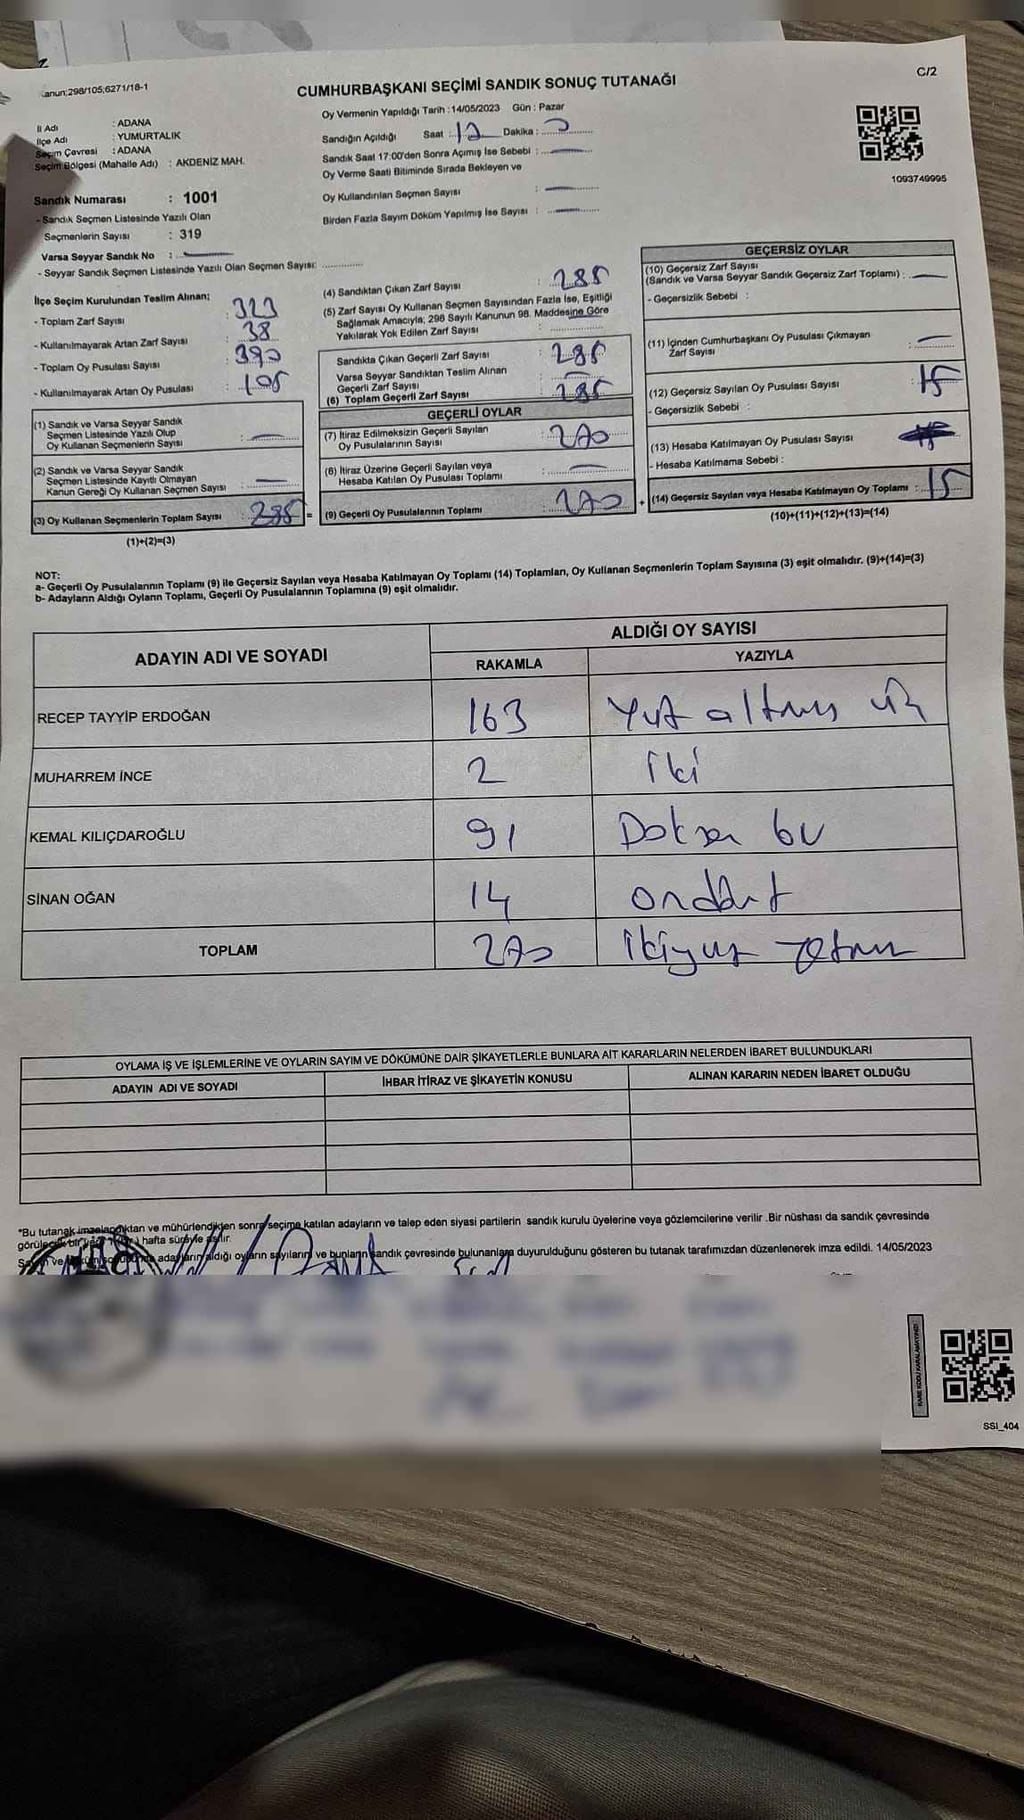 Kanun:298/105;6271/18-1
CUMHURBAŞKANI SEÇİMİ SANDIK SONUÇ TUTANAĞI
C/2
İl Adı : ADANA
İlçe Adı : YUMURTALIK
Seçim Çevresi : ADANA
Seçim Bölgesi (Mahalle Adı) : AKDENİZ MAH.
Sandık Numarası : 1001
- Sandık Seçmen Listesinde Yazılı Olan
Seçmenlerin Sayısı : 319
Varsa Seyyar Sandık No :
- Seyyar Sandık Seçmen Listesinde Yazılı Olan Seçmen Sayısı:
Oy Vermenin Yapıldığı Tarih : 14/05/2023 Gün : Pazar
Sandığın Açıldığı Saat : 17 Dakika :
Sandık Saat 17:00'den Sonra Açımış İse Sebebi :
Oy Verme Saati Bitiminde Sırada Bekleyen ve
Oy Kullandırılan Seçmen Sayısı :
Birden Fazla Sayım Döküm Yapılmış İse Sayısı :
1093749995
İlçe Seçim Kurulundan Teslim Alınan;
- Toplam Zarf Sayısı : 323
- Kullanılmayarak Artan Zarf Sayısı : 38
- Toplam Oy Pusulası Sayısı : 390
- Kullanılmayarak Artan Oy Pusulası : 105
(1) Sandık ve Varsa Seyyar Sandık
Seçmen Listesinde Yazılı Olup
Oy Kullanan Seçmenlerin Sayısı :
(2) Sandık ve Varsa Seyyar Sandık
Seçmen Listesinde Kayıtlı Olmayan
Kanun Gereği Oy Kullanan Seçmen Sayısı :
(3) Oy Kullanan Seçmenlerin Toplam Sayısı : 285 =
(1)+(2)=(3)
(4) Sandıktan Çıkan Zarf Sayısı : 285
(5) Zarf Sayısı Oy Kullanan Seçmen Sayısından Fazla İse, Eşitliği
Sağlamak Amacıyla; 298 Sayılı Kanunun 98. Maddesine Göre
Yakılarak Yok Edilen Zarf Sayısı :
Sandıkta Çıkan Geçerli Zarf Sayısı : 285
Varsa Seyyar Sandıktan Teslim Alınan
Geçerli Zarf Sayısı :
(6) Toplam Geçerli Zarf Sayısı : 285
GEÇERLİ OYLAR
(7) İtiraz Edilmeksizin Geçerli Sayılan
Oy Pusulalarının Sayısı : 270
(8) İtiraz Üzerine Geçerli Sayılan veya
Hesaba Katılan Oy Pusulası Toplamı :
(9) Geçerli Oy Pusulalarının Toplamı : 270 +
GEÇERSİZ OYLAR
(10) Geçersiz Zarf Sayısı
(Sandık ve Varsa Seyyar Sandık Geçersiz Zarf Toplamı) :
- Geçersizlik Sebebi :
(11) İçinden Cumhurbaşkanı Oy Pusulası Çıkmayan
Zarf Sayısı :
(12) Geçersiz Sayılan Oy Pusulası Sayısı : 15
- Geçersizlik Sebebi :
(13) Hesaba Katılmayan Oy Pusulası Sayısı :
- Hesaba Katılmama Sebebi :
(14) Geçersiz Sayılan veya Hesaba Katılmayan Oy Toplamı : 15
(10)+(11)+(12)+(13)=(14)
NOT:
a- Geçerli Oy Pusulalarının Toplamı (9) ile Geçersiz Sayılan veya Hesaba Katılmayan Oy Toplamı (14) Toplamları, Oy Kullanan Seçmenlerin Toplam Sayısına (3) eşit olmalıdır. (9)+(14)=(3)
b- Adayların Aldığı Oyların Toplamı, Geçerli Oy Pusulalarının Toplamına (9) eşit olmalıdır.
ADAYIN ADI VE SOYADI
ALDIĞI OY SAYISI
RAKAMLA YAZIYLA
RECEP TAYYİP ERDOĞAN 163 Yüz altmış üç
MUHARREM İNCE 2 iki
KEMAL KILIÇDAROĞLU 91 Doksan bir
SİNAN OĞAN 14 ondört
TOPLAM 270 ikiyüz yetmiş
OYLAMA İŞ VE İŞLEMLERİNE VE OYLARIN SAYIM VE DÖKÜMÜNE DAİR ŞİKAYETLERLE BUNLARA AİT KARARLARIN NELERDEN İBARET BULUNDUKLARI
ADAYIN ADI VE SOYADI İHBAR İTİRAZ VE ŞİKAYETİN KONUSU ALINAN KARARIN NEDEN İBARET OLDUĞU
"Bu tutanak imzalandıktan ve mühürlendikten sonra seçime katılan adayların ve talep eden siyasi partilerin sandık kurulu üyelerine veya gözlemcilerine verilir .Bir nüshası da sandık çevresinde
hafta süreyle asılır.
adayların aldığı oyların sayılarını ve bunların sandık çevresinde bulunanlara duyurulduğunu gösteren bu tutanak tarafımızdan düzenlenerek imza edildi. 14/05/2023
KARE KODU KARALAMAYINIZ!
SSI_404